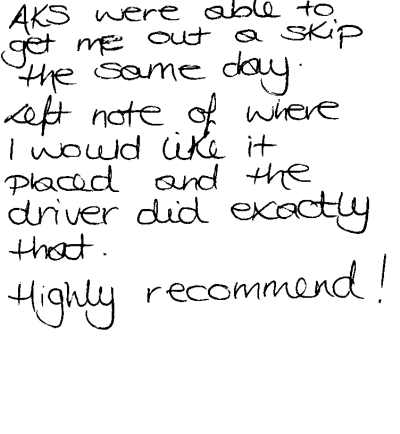 AKS were able to
get me out a skip
the same day.
Left note of where
I would like it
placed and the
driver did exactly
that.
Highly recommend!